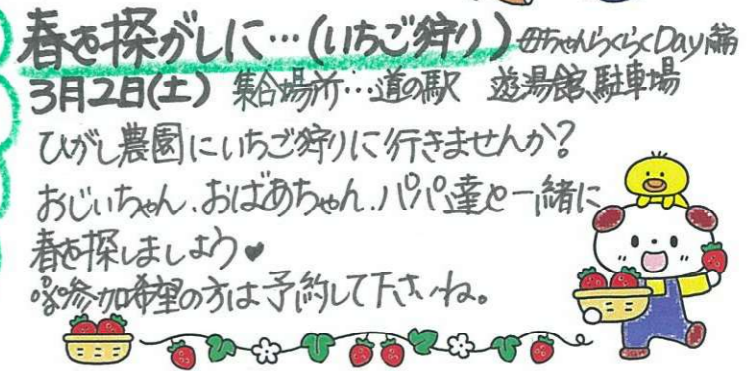 春を探がしに…(いちご狩り)母ちゃんらくらくDay編
3月2日(土) 集合場所…道の駅 遊湯館、駐車場
ひがし農園にいちご狩りに行きませんか?
おじいちゃん、おばあちゃん、パパ達と一緒に
春を探しましょう♥
※参加希望の方は予約して下さいね。